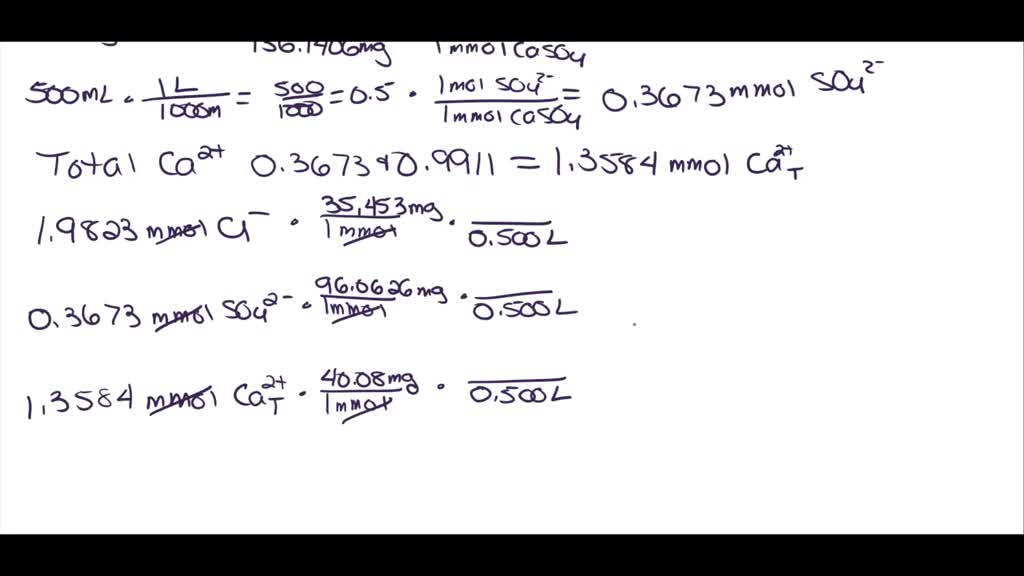 136.1406mg 1mmol CaSO4
500mL · 1L / 1000m = 500 / 1000 = 0.5 · 1mol SO4²⁻ / 1mmol CaSO4 = 0.3673 mmol SO4²⁻
Total Ca²⁺ 0.3673 + 0.9911 = 1.3584 mmol Ca²⁺T
1.9823 mmol Cl⁻ · 35.453mg / 1mmol · 0.500L
0.3673 mmol SO4²⁻ · 96.0626mg / 1mmol · 0.500L
1.3584 mmol Ca²⁺T · 40.08mg / 1mmol · 0.500L